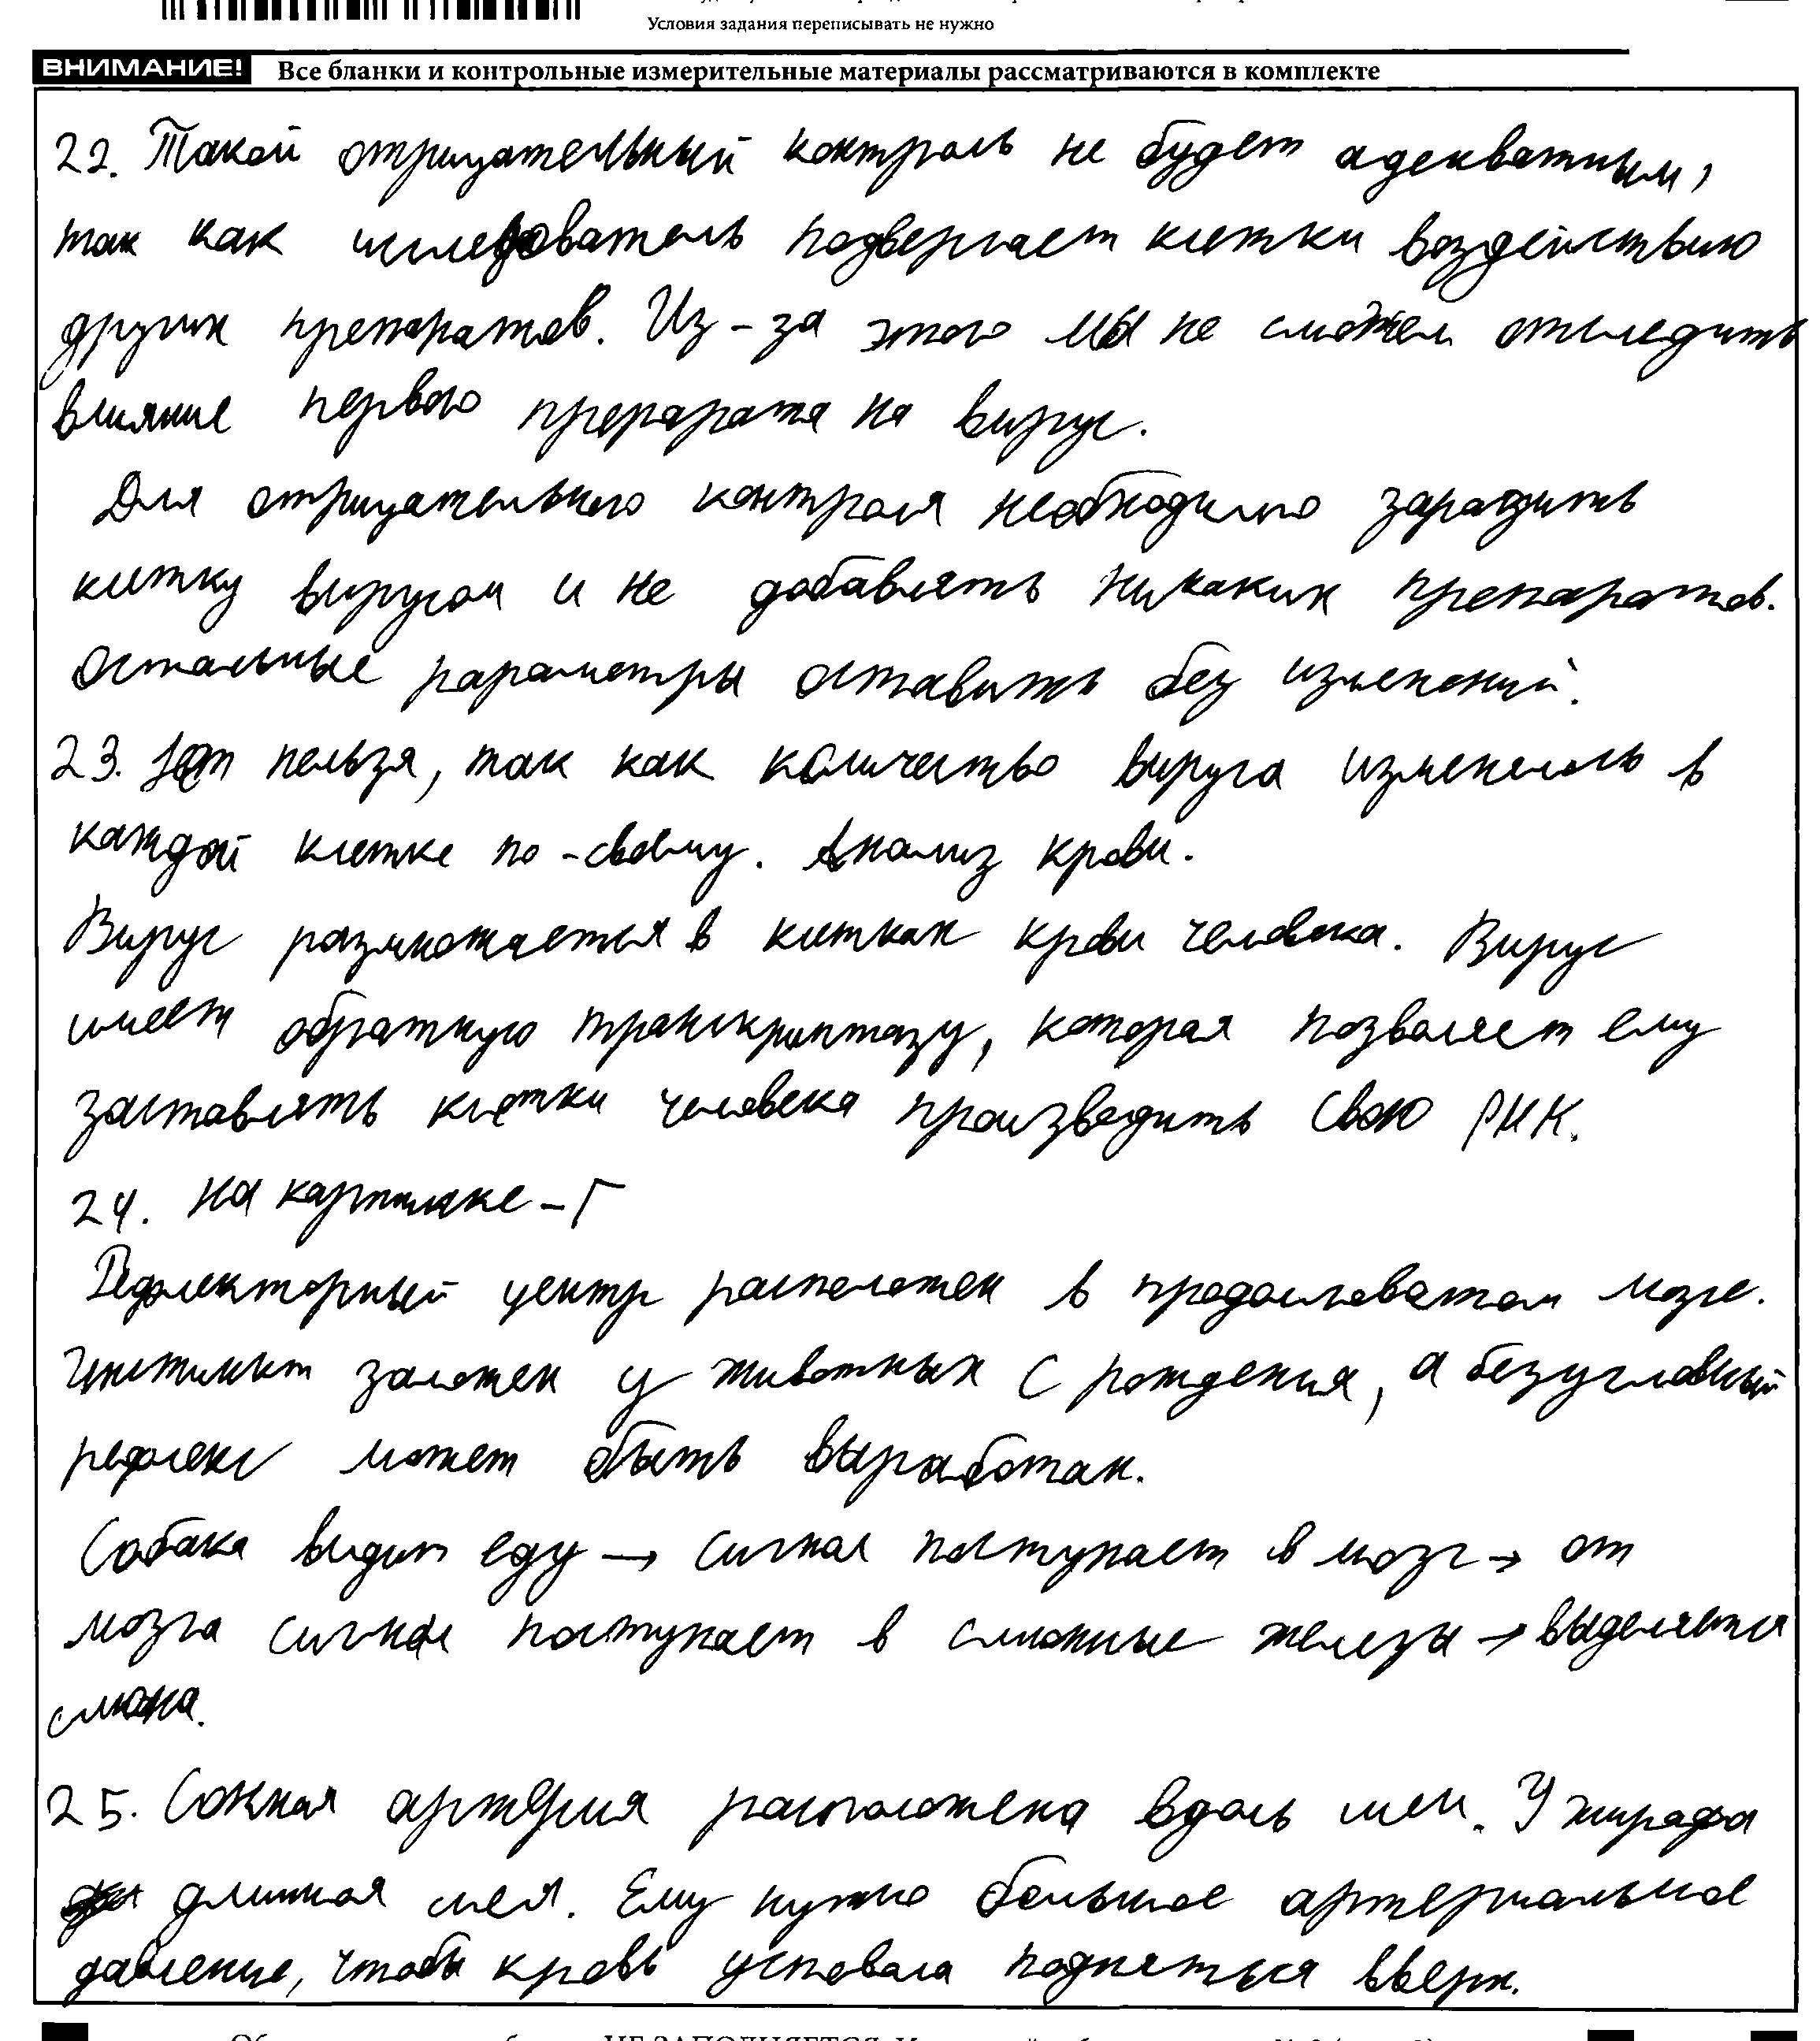 Условия задания переписывать не нужно
ВНИМАНИЕ! Все бланки и контрольные измерительные материалы рассматриваются в комплекте
22. Такой отрицательный контроль не будет адекватным,
так как исследователь подвергает клетки воздействию
других препаратов. Из-за этого мы не сможем отследить
влияние первого препарата на вирус.
Для отрицательного контроля необходимо заразить
клетку вирусом и не добавлять никаких препаратов.
Остальные параметры оставить без изменений.
23. нельзя, так как количество вируса изменялось в
каждой клетке по-своему. Анализ крови.
Вирус размножается в клетках крови человека. Вирус
имеет обратную транскриптазу, которая позволяет ему
заставлять клетки человека производить свою РНК.
24. На картинке – Г
Рефлекторный центр расположен в продолговатом мозге.
Инстинкт заложен у животных с рождения, а безусловный
рефлекс может быть выработан.
Собака видит еду → сигнал поступает в мозг → от
мозга сигнал поступает в слюнные железы → выделяется
слюна.
25. Сонная артерия расположена вдоль шеи. У жирафа
длинная шея. Ему нужно большое артериальное
давление, чтобы кровь успевала подняться вверх.